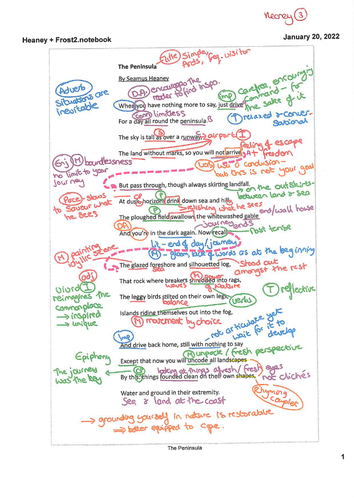 Heaney ③
Heaney + Frost2.notebook
January 20, 2022
Title Simple,
The Peninsula
By Seamus Heaney
D.A encourages the
reader to find inspo.
Adverb
Situations are
inevitable
Imp
Careful, encouraging
command - for
the sake of it
When you have nothing more to say, just drive
limitless
For a day all round the peninsula.
T relaxed & conver-
sational
The sky is tall as over a runway,
airport
The land without marks, so you will not arrive
feeling of escape
& freedom
Enj M boundlessness
no limit to your
journey
conclusion -
but this is not your goal
But pass through, though always skirting landfall.
on the outskirts -
between land & sea
Pace: slows
to savour what
he sees
At dusk, horizons drink down sea and hill,
relishing what he sees
The ploughed field swallows the whitewashed gable
end/wall house
DA
journey ends
And you're in the dark again. Now recall
Past tense
lit - end of day/journey
M - glam, lack of words as at the beginning
M painting
idyllic scene
The glazed foreshore and silhouetted log,
Stood out
amongst the rest
adj
That rock where breakers shredded into rags,
waves
M Power
of Nature
Vivid I
reimagines the
commonplace
→ inspired
→ unique
The leggy birds stilted on their own legs,
balance
Verbs
T reflective
Islands riding themselves out into the fog,
M movement by choice
Imp
not articulate yet
wait for it to
develop
And drive back home, still with nothing to say
M unpack / fresh perspective
Epiphany
The journey
was the key
Except that now you will uncode all landscapes
looking at things afresh / fresh eyes
By this: things founded clean on their own shapes,
not clichés
Rhyming
couplet
Water and ground in their extremity.
Sea & land at the coast
→ grounding yourself in nature is restorative
→ better equipped to cope.
The Peninsula
1